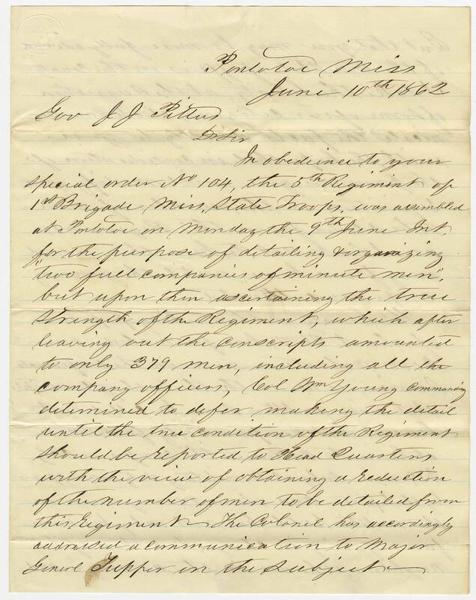 Pontotoc Miss
June 10th 1862
Gov J J Pettus
Dr Sir
In obedience to your
special order No 104, the 5th Regiment of
1st Brigade Miss, State Troops, was assembled
at Pontotoc on Monday the 9th June Int
for the purpose of detailing & organizing
"two full companies of minute men",
but upon then ascertaining the true
strength of the Regiment, which after
leaving out the conscripts amounted
to only 379 men, including all the
company officers, Col Wm Young commanding
detirmined to defer making the detail
until the true condition of the Regiment
should be reported to Head Quarters
with the view of obtaining a reduction
of the number of men to be detailed from
this Regiment. The Colonel has accordingly
addressed a communication to Major
Generl Tupper on the subject